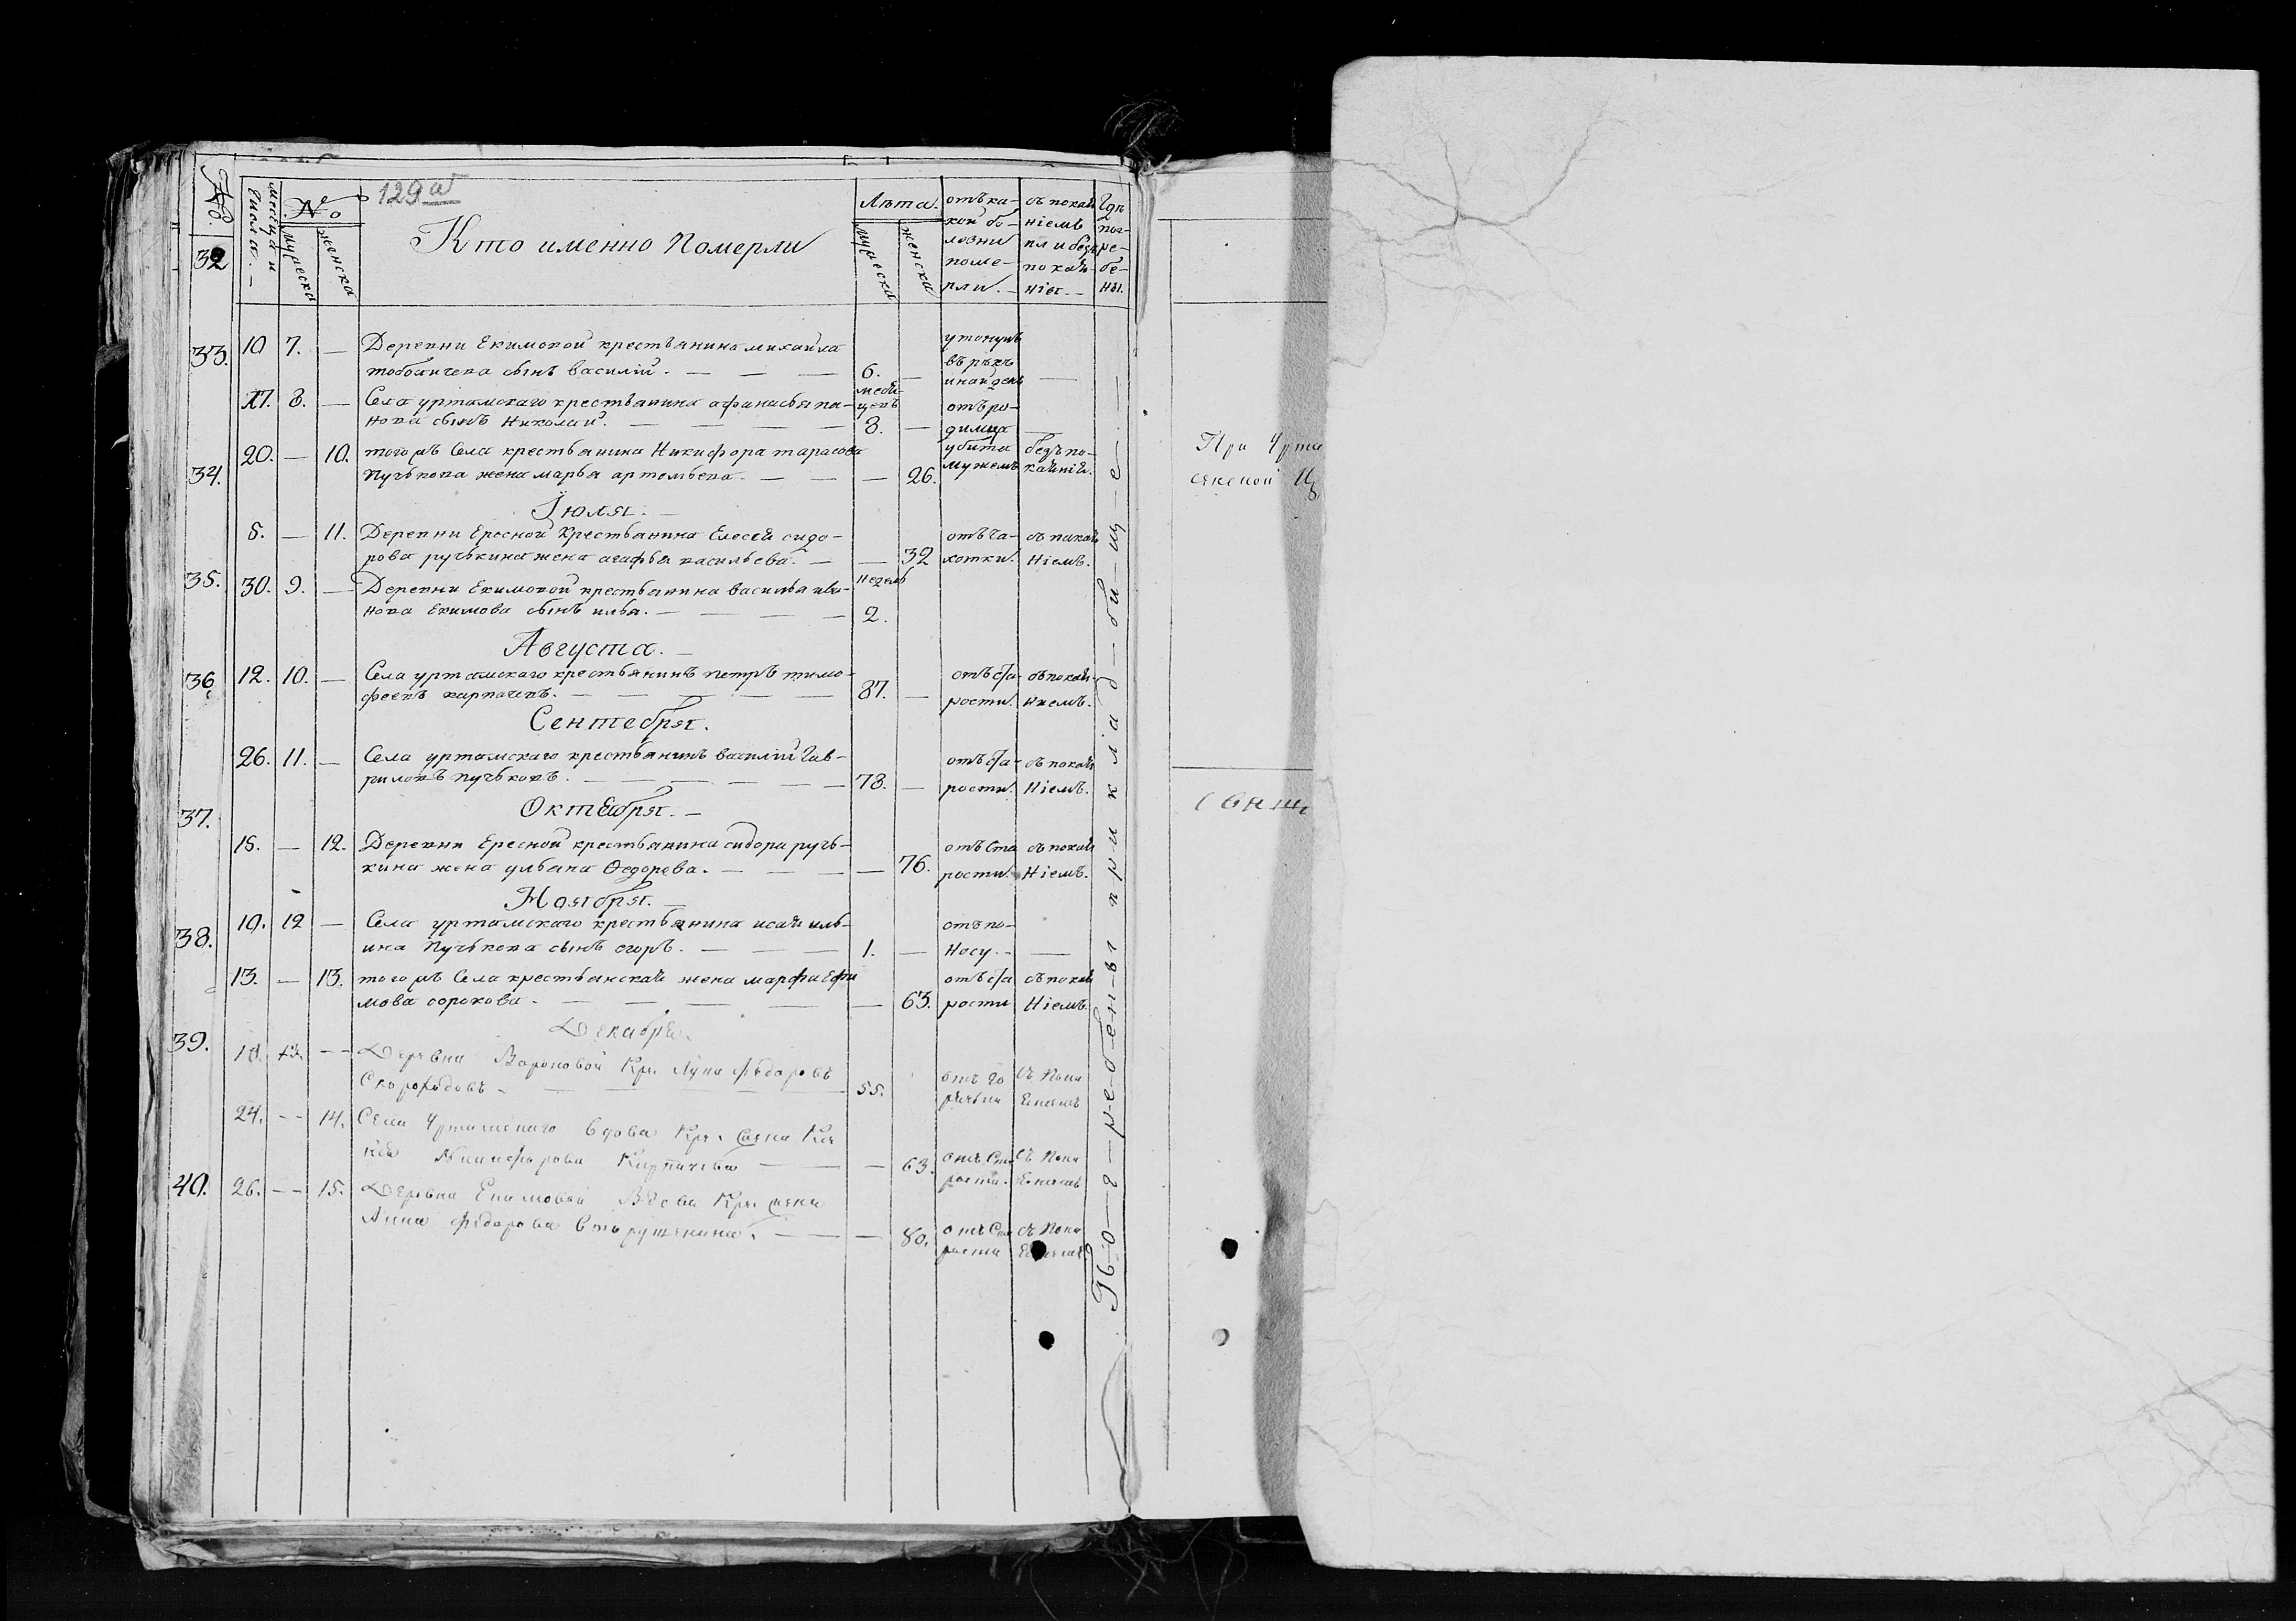 129 а
№
32
месеца и
числа. —
№
мужеска
женска
Кто именно Померли
Лѣта.
мужеска
женска
отъ ка-
кой бо-
лѣзни
поме-
рли. —
съ покая
ніемъ
или безъ
покая-
нія. —
Гдѣ
пог-
ре-
бе-
ны.
33. 10 7. — Деревни Екимовой крестьянина михайла
сынъ василій. — — — 6. —
утонулъ
въ рѣкѣ
инайденъ —
17. 8. — Села уртамскаго крестьянина афанасья па-
нова сынъ Николай. — — — — месе-
цевъ
8. —
отъ ро-
димца —
34. 20. — 10. тогожъ Села крестьянина Никифора тарасова
Пучькова жена марья артемьева. — — — 26.
убита
мужемъ
безъ по-
каянія.
Іюля. —
5. — 11. Деревни Ересной Крестьянина Елесея сидо-
рова ручькина жена агафья васильева. — — 32
отъ ча-
хотки.
съ покая
ніемъ.
35. 30. 9. — Деревни Екимовой крестьянина василья ива-
нова Екимова сынъ илья. — — — недель
2.
Августа. —
36. 12. 10. — Села уртамскаго крестьянинъ петръ тимо-
феевъ карпачевъ. — — — — 87. —
отъ ста-
рости.
съ покая-
ниемъ.
Сентебря.
26. 11. — Села уртамскаго крестьянинъ василій Гав-
риловъ пучьковъ. — — — — 78. —
отъ ста-
рости.
съ покая
ніемъ.
37.
Октебря. —
15. — 12. Деревни Ересной крестьянина сидора ручь-
кина жена ульяна Федорева. — — — — 76.
отъ Ста
рости.
съ покая
ніемъ.
Ноября. —
38. 10. 12 — Села уртамскаго крестьянина исаи иль-
ина Пучькова сынъ егоръ. — — — 1. —
отъ по-
носу. — —
13. — 13. тогожъ Села крестьянская жена марфа Ефи
мова сорокова. — — — — — 63.
отъ ста
рости
съ покая
ніемъ.
39.
Декабря.
18. 13. — Деревни Вороновой Кр. Лука Федоровъ
Скороходовъ — — 55.
отъ го
рячки
съ Пока
еніемъ
24. — 14. Села Уртамскаго вдова Крестьянка
Никифорова Карпачева — — 63.
отъ Ста
рости.
съ Пока
еніемъ
40. 26. — 15. Деревни Екимовой Вдова Крестьянка
Анна Федорова — — 80.
отъ Ста
рости
съ Пока
еніемъ
Гв-о-е — ре-бен-ы при клад-би-щ-е
При Урта